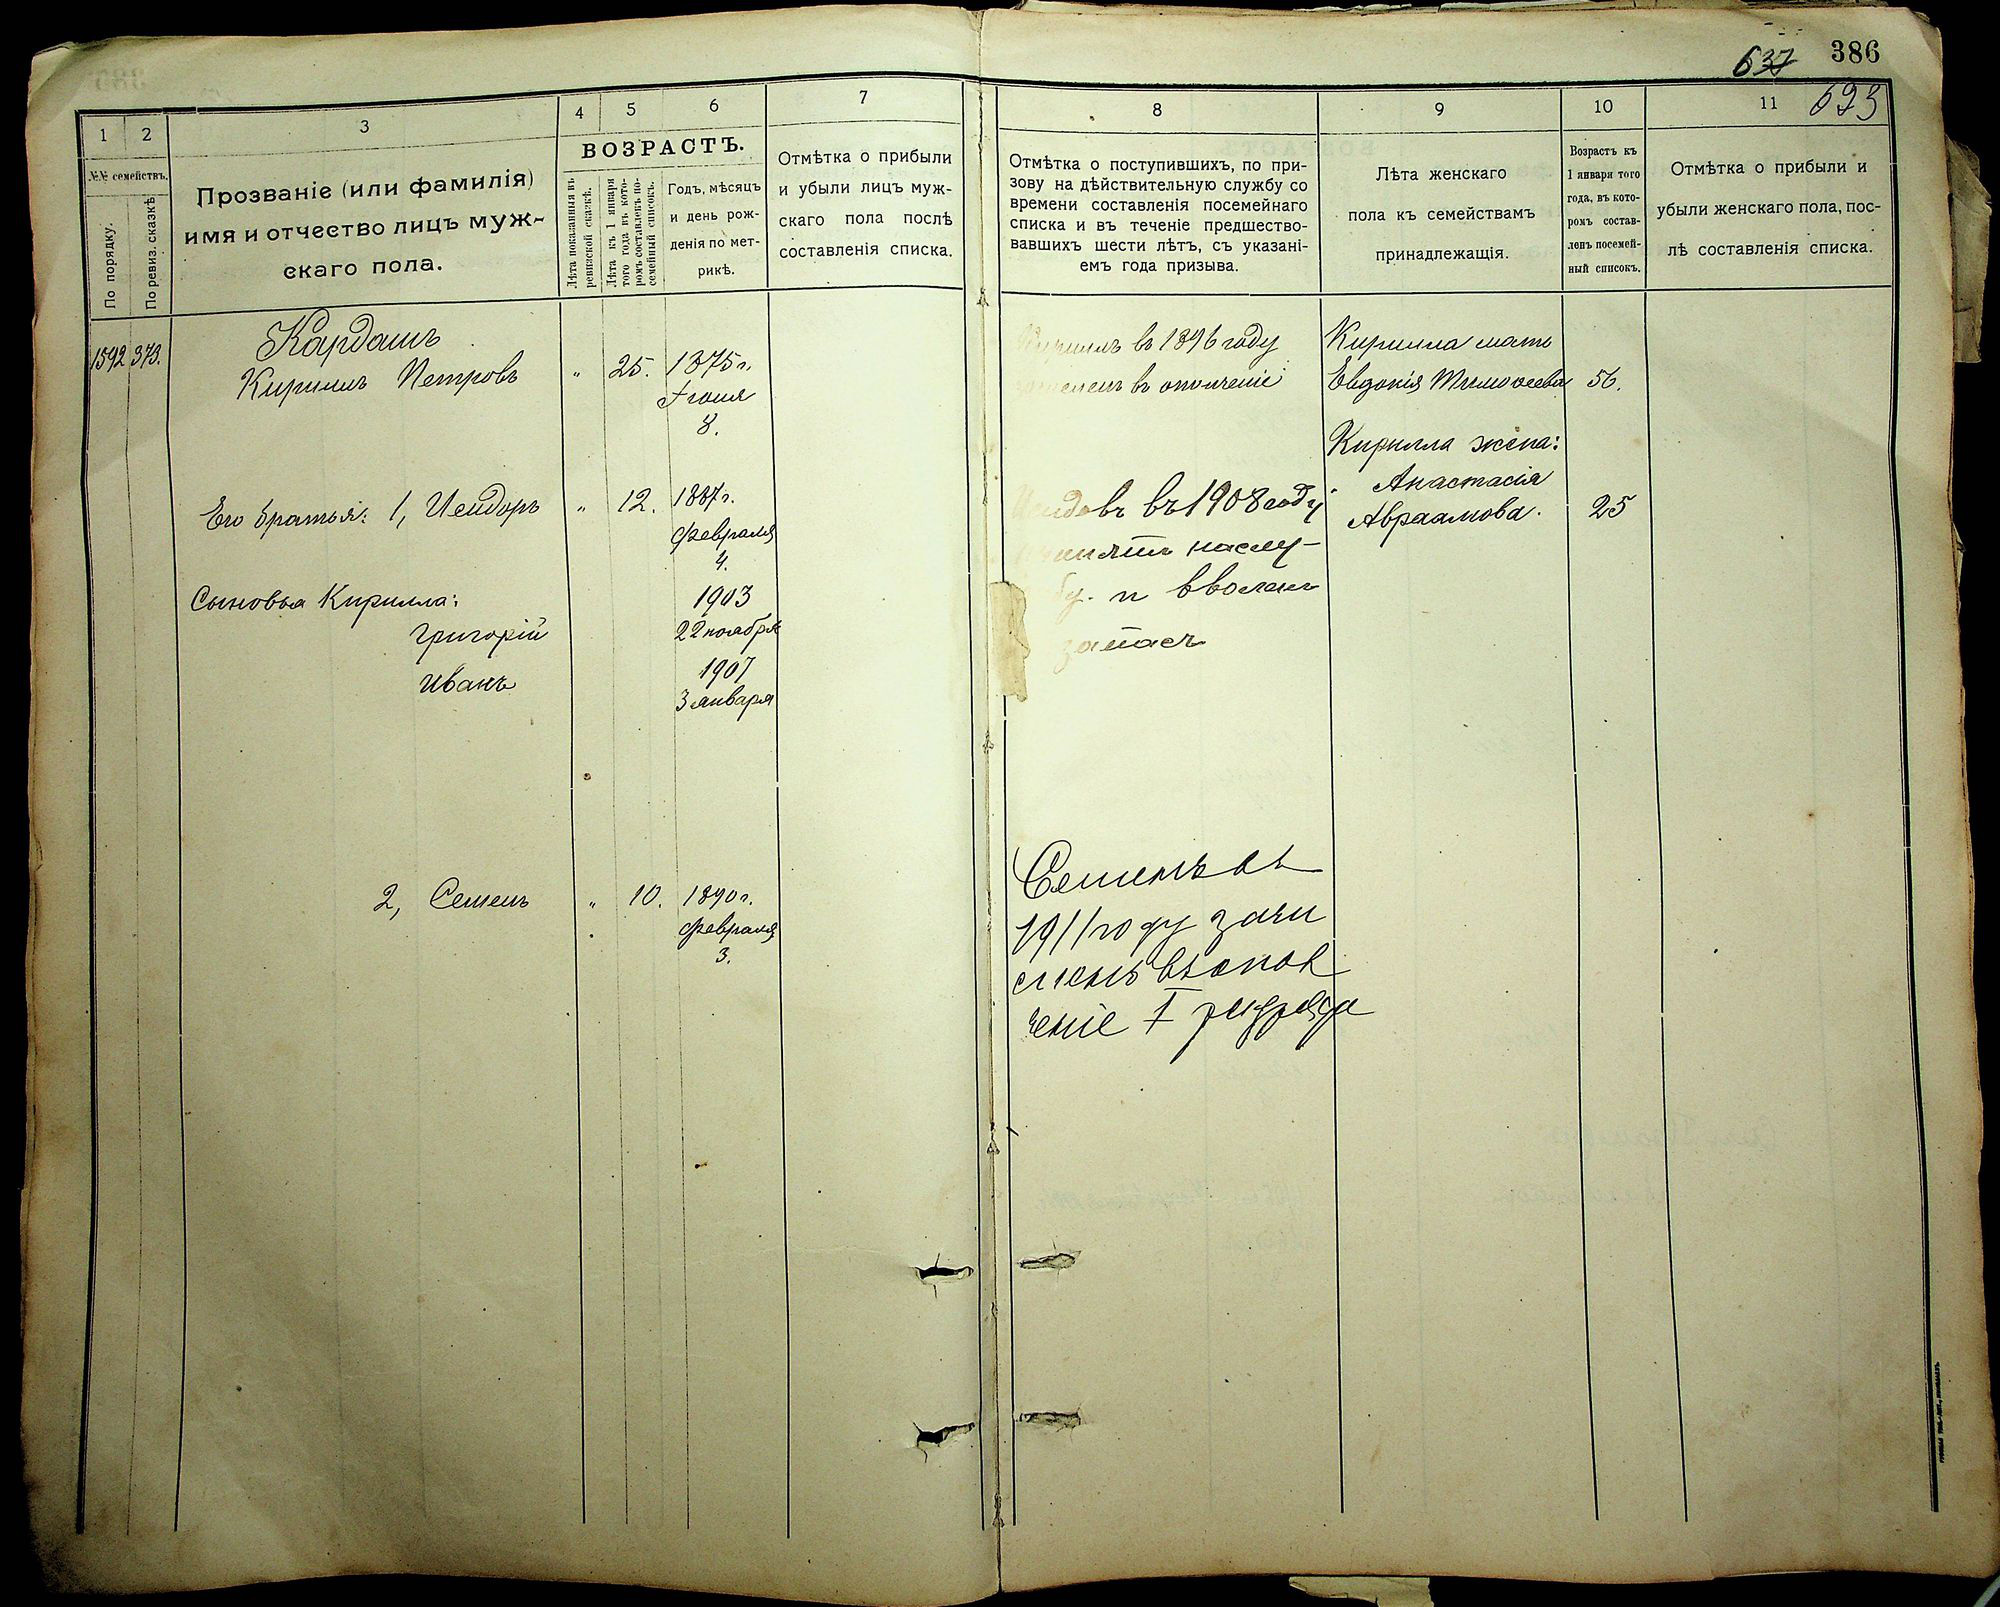 386
637
693
1
2
3
4
5
6
7
8
9
10
11
№№ семействъ.
По порядку.
По ревиз. сказкѣ
Прозваніе (или фамилія)
имя и отчество лицъ муж-
скаго пола.
ВОЗРАСТЪ.
Лѣта показанныя въ
ревизской сказкѣ.
Лѣта къ 1 января
того года въ кото-
ромъ составленъ по-
семейный списокъ.
Годъ, мѣсяцъ
и день рож-
денія по мет-
рикѣ.
Отмѣтка о прибыли
и убыли лицъ муж-
скаго пола послѣ
составленія списка.
Отмѣтка о поступившихъ, по при-
зову на дѣйствительную службу со
времени составленія посемейнаго
списка и въ теченіе предшество-
вавшихъ шести лѣтъ, съ указані-
емъ года призыва.
Лѣта женскаго
пола къ семействамъ
принадлежащія.
Возрастъ къ
1 января того
года, въ кото-
ромъ состав-
ленъ посемей-
ный списокъ.
Отмѣтка о прибыли и
убыли женскаго пола, пос-
лѣ составленія списка.
1592 373.
Кардашъ
Кириллъ Петровъ " 25. 1875 г.
Іюня
8.
Его братья: 1, Исидоръ " 12. 1887 г.
февраля
4.
Сыновья Кирилла:
Григорій
1903
22 ноября
Иванъ
1907
3 января
2, Семенъ " 10. 1890 г.
февраля
3.
Кириллъ въ 1896 году
въ ополченіе
въ 1908 году
принятъ на слу-
и вволенъ
запасъ
Семенъ въ
1911 году зачи
сленъ въ опол
ченіе I разряда
Кирилла мать
Евдокія Тимоѳеева 56.
Кирилла жена:
Анастасія
Авраамова. 25